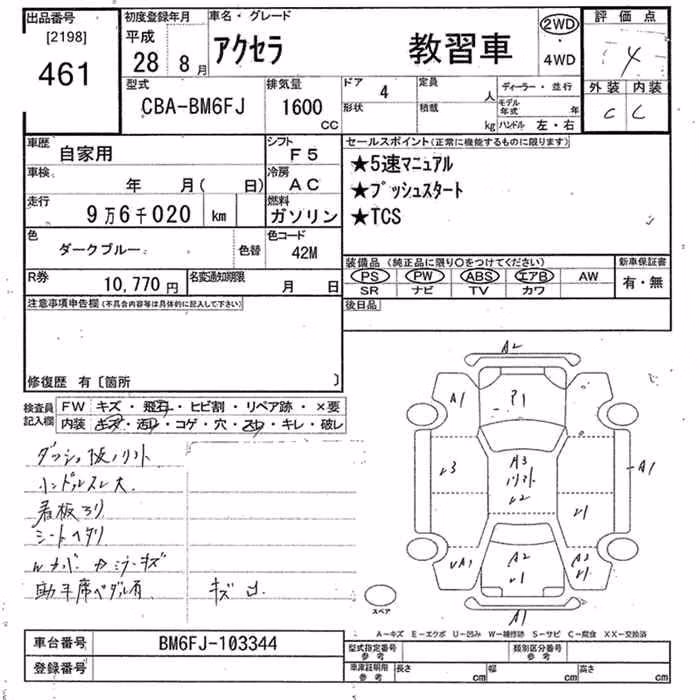 出品番号
[2198]
461
初度登録年月
平成
28 8月
車名・グレード
アクセラ 教習車
2WD
・
4WD
評価点
4
外装 内装
C C
型式
CBA-BM6FJ
排気量
1600
CC
ドア 4
形状
定員 人
積載 kg
ディーラー・並行
モデル年式 年
ハンドル 左・右
車歴
自家用
シフト
F5
車検
年 月( 日)
冷房
AC
走行
9万6千020 km
燃料
ガソリン
色
ダークブルー
色替
色コード
42M
R券
10,770円
名変通知期限
月 日
セールスポイント(正常に機能するものに限ります)
★5速マニュアル
★プッシュスタート
★TCS
装備品(純正品に限り○をつけてください)
PS PW ABS エアB AW
SR ナビ TV カワ
新車保証書
有・無
後日品
注意事項申告欄(不具合内容等は具体的に記入して下さい)
修復歴 有〔箇所 〕
検査員
記入欄
FW キズ・飛石・ヒビ割・リペア跡・×要
内装 キズ・汚れ・コゲ・穴・スレ・キレ・破レ
ハンドルスレ大
シートヘタリ
助手席ペダル有
キズ 凹
A2
A1
P1
A3
A1
A2
A1
スペア
A-キズ E-エクボ U-凹み W-補修跡 S-サビ C-腐食 XX-交換済
車台番号 BM6FJ-103344
登録番号
型式指定番号
参考
類別区分番号
参考
車庫証明用
参考
長さ cm
幅 cm
高さ cm